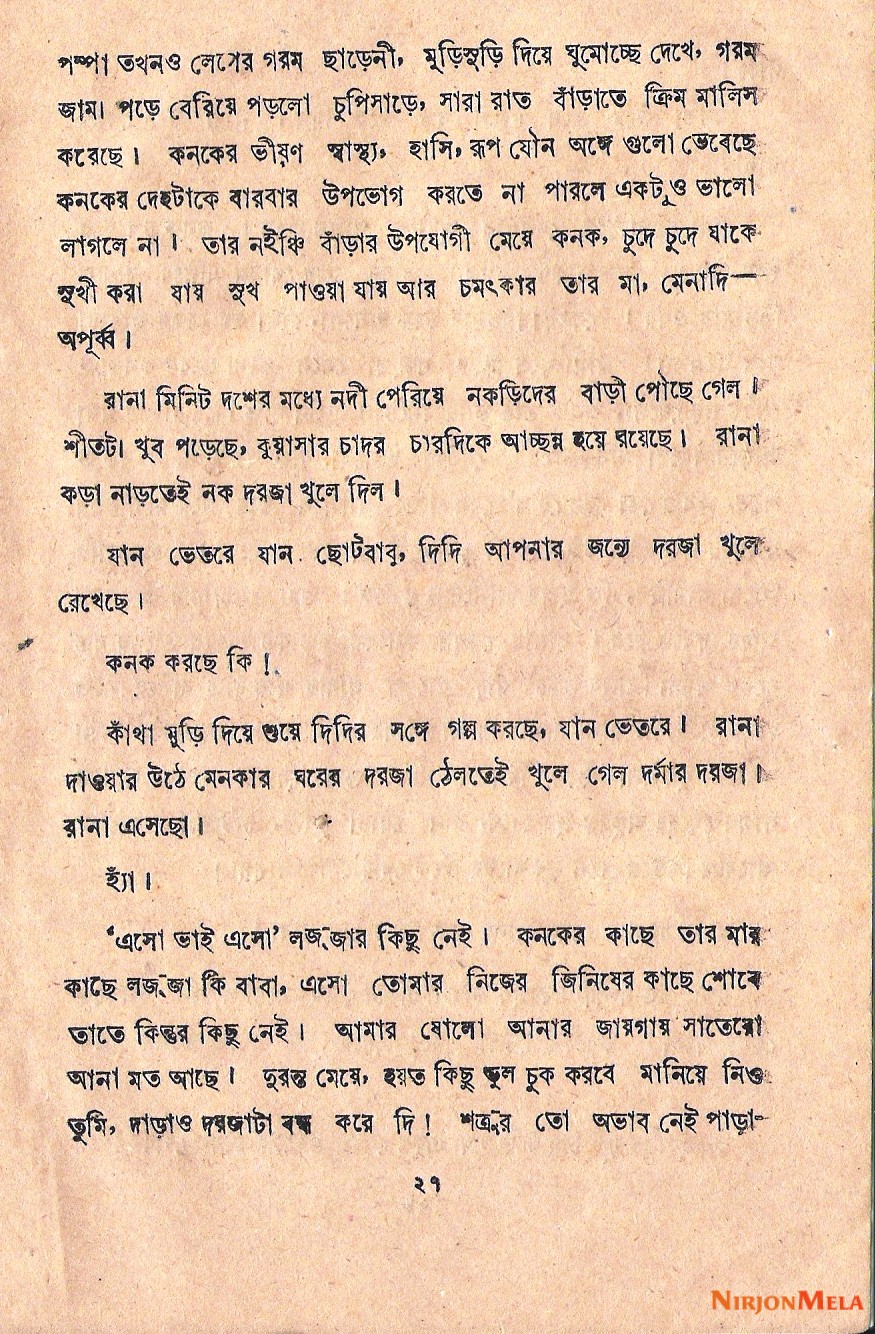 পম্পা তখনও লেপের গরম ছাড়েনী, মুড়িসুড়ি দিয়ে ঘুমোচ্ছে দেখে, গরম
জামা পড়ে বেরিয়ে পড়লো চুপিসাড়ে, সারা রাত বাঁড়াতে ক্রিম মালিস
করেছে। কনকের ভীষণ স্বাস্থ্য, হাসি, রূপ যৌন অঙ্গে গুলো ভেবেছে
কনকের দেহটাকে বারবার উপভোগ করতে না পারলে একটুও ভালো
লাগলে না। তার নইঞ্চি বাঁড়ার উপযোগী মেয়ে কনক, চুদে চুদে যাকে
সুখী করা যায় সুখ পাওয়া যায় আর চমৎকার তার মা, মেনাদি—
অপূর্ব্ব।
রানা মিনিট দশের মধ্যে নদী পেরিয়ে নকড়িদের বাড়ী পৌছে গেল।
শীতটা খুব পড়েছে, কুয়াসার চাদর চারদিকে আচ্ছন্ন হয়ে রয়েছে। রানা
কড়া নাড়তেই নক দরজা খুলে দিল।
যান ভেতরে যান ছোটবাবু, দিদি আপনার জন্যে দরজা খুলে
রেখেছে।
কনক করছে কি!
কাঁথা মুড়ি দিয়ে শুয়ে দিদির সঙ্গে গল্প করছে, যান ভেতরে। রানা
দাওয়ার উঠে মেনকার ঘরের দরজা ঠেলতেই খুলে গেল দর্মার দরজা।
রানা এসেছো।
হ্যাঁ।
‘এসো ভাই এসো’ লজ্জার কিছু নেই। কনকের কাছে তার মার
কাছে লজ্জা কি বাবা, এসো তোমার নিজের জিনিষের কাছে শোবে
তাতে কিন্তুর কিছু নেই। আমার ষোলো আনার জায়গায় সাতেরো
আনা মত আছে। দুরন্ত মেয়ে, হয়ত কিছু ভুল চুক করবে মানিয়ে নিও
তুমি, দাড়াও দরজাটা বন্ধ করে দি! শত্রুর তো অভাব নেই পাড়া-
২৭
NIRJONMELA